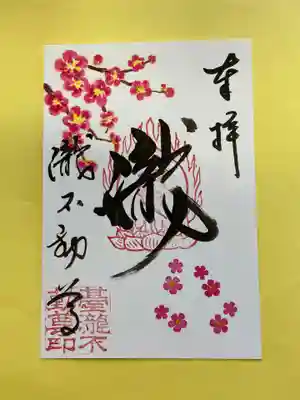 奉拝
瀧不動尊
龍不
動尊印